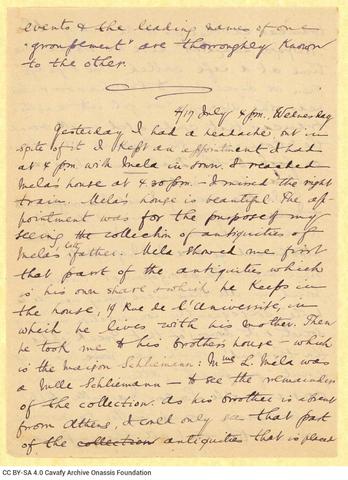 events & the leading names of one
"groupement" are thorroughly known
to the other.
4/17 July 4 p.m. Wednesday
Yesterday I had a headache but in
spite of it I kept an appointment I had
at 4 p.m. with Mela in town. I reached
Mela's house at 4.30 p.m. — I missed the right
train. Mela's house is beautiful. The ap-
pointment was for the purpose of my
seeing the collection of antiquities of
Mela's late father. Mela showed me first
that part of the antiquities which
is his own share & which he keeps in
the house, 19 Rue de l'Université, in
which he lives with his mother. Then
he took me to his brother's house — which
is the maison Schliemann: Mme L. Mela was
a Mlle Schliemann — to see the remainder
of the collection. As his brother is absent
from Athens, I could only see that part
of the collection antiquities that is placed
CC BY-SA 4.0 Cavafy Archive Onassis Foundation